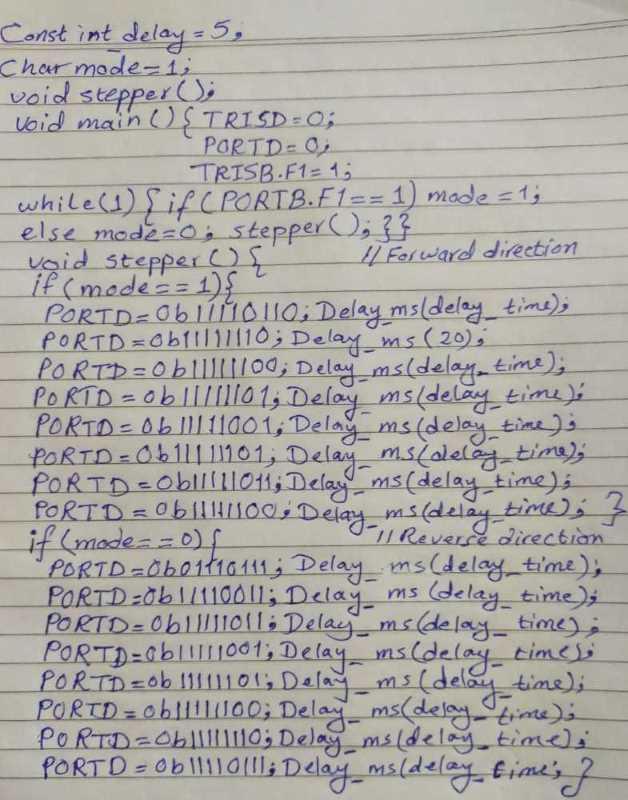 Const int_delay = 5;
Char mode=1;
void stepper();
void main(){ TRISD=0;
PORTD=0;
TRISB.F1=1;
while(1){ if(PORTB.F1==1) mode=1;
else mode=0; stepper(); }}
void stepper(){ // Forward direction
if(mode==1){
PORTD=0b11110110; Delay_ms(delay_time);
PORTD=0b11111110; Delay_ms(20);
PORTD=0b11111100; Delay_ms(delay_time);
PORTD=0b11111101; Delay_ms(delay_time);
PORTD=0b11111001; Delay_ms(delay_time);
PORTD=0b11111101; Delay_ms(delay_time);
PORTD=0b11111011; Delay_ms(delay_time);
PORTD=0b11111100; Delay_ms(delay_time); }
if(mode==0){ // Reverse direction
PORTD=0b01110111; Delay_ms(delay_time);
PORTD=0b11110011; Delay_ms(delay_time);
PORTD=0b11111011; Delay_ms(delay_time);
PORTD=0b11111001; Delay_ms(delay_time);
PORTD=0b11111101; Delay_ms(delay_time);
PORTD=0b11111100; Delay_ms(delay_time);
PORTD=0b11111110; Delay_ms(delay_time);
PORTD=0b11110111; Delay_ms(delay_time; }